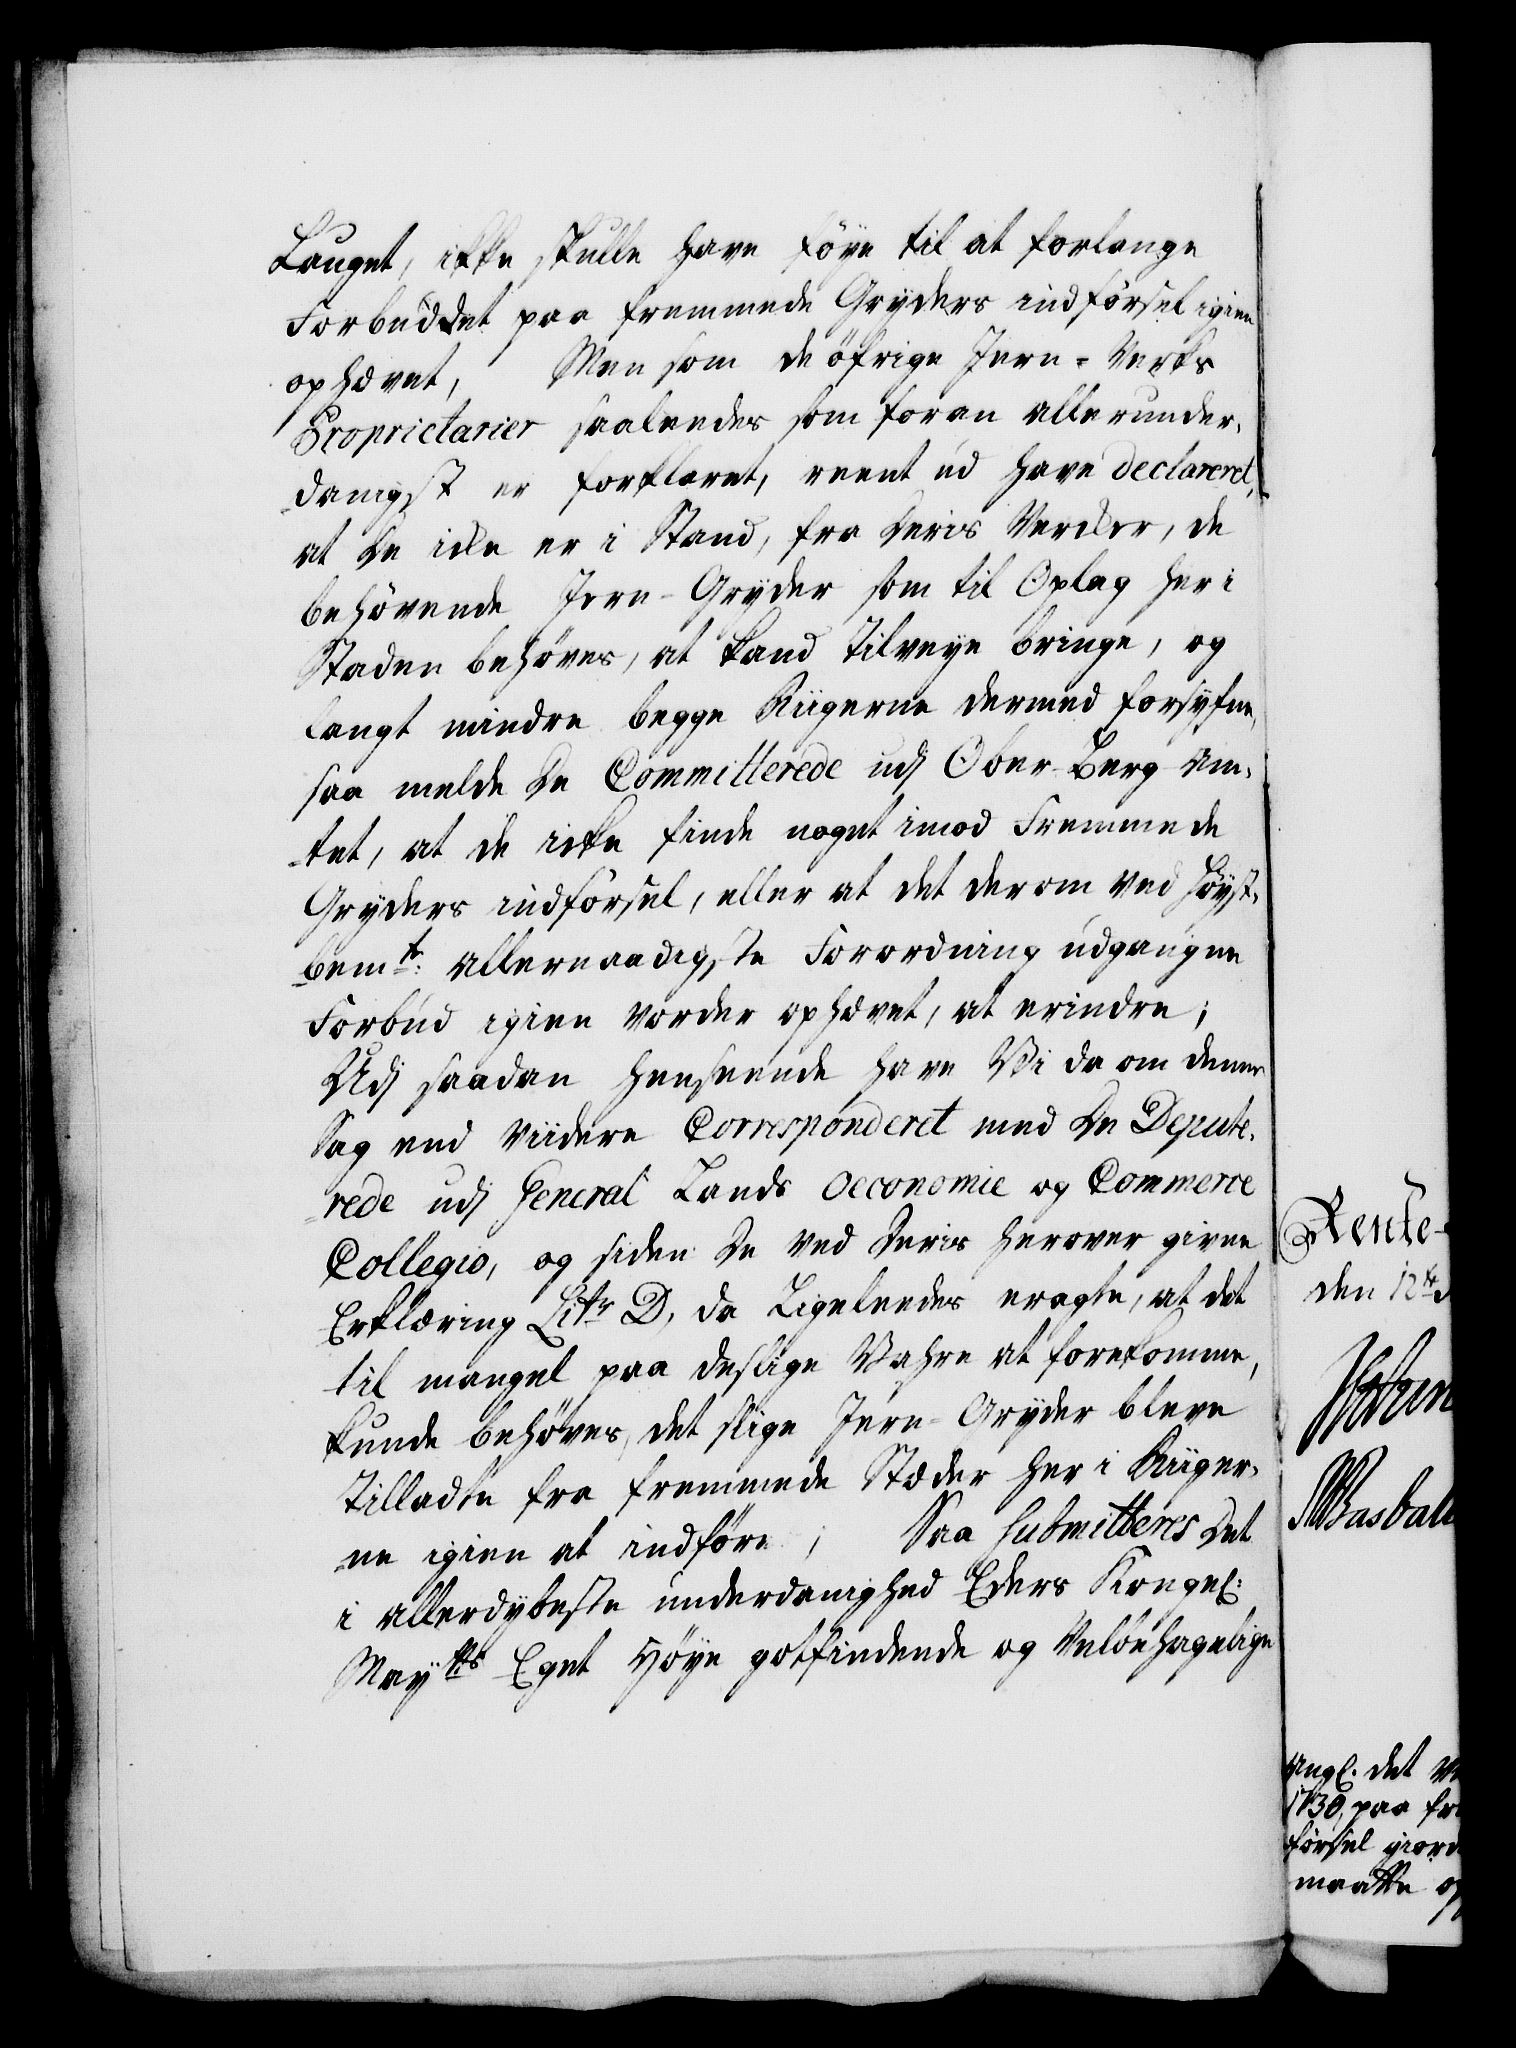 Lauget, ikke skulle have föye til at forlange
Forbuddet paa fremmede Gryders indförsel igien
ophævet, Men som de öfrige Jern-Verks
Proprietarier saaleedes som foran allerunder-
danigst er forklaret, reent ud have declareret,
at de icke er i Stand, fra deris Vercker, de
behövende Jern-Gryder som til Oplag her i
Staden behöves, at kand tilveye bringe, og
langt mindre begge Riigerne dermed forsyfne,
saa melde de Committerede udj Ober-Berg-Am-
tet, at de icke finde noget imod Fremmede
Gryders indförsel, eller at det derom ved Höyst-
bemte: allernaadigste Forordning udgangne
Forbud igien vorder ophævet, at erindre;
Udj saadan henseende have Vi da om denne
Sag end viidere Corresponderet med de Depute-
rede udj General Lands Oeconomie og Commerce
Collegio, og siden de ved deris herover givne
Erklæring Litr D, da Ligeleedes eragte, at det
til mangel paa deslige Vahre at forekomme,
kunde behöves, det slige Jern-Gryder bleve
tilladte fra fremmede Stæder her i Riiger-
ne igien at indföre; Saa Submitteres det
i allerdybeste underdanighed Eders Kongel:
Mayts Eget Höye gotfindende og Velbehagelige
Rente-
den 12te
Wasball
Angl. det
1730, paa
förSel giord
maatte